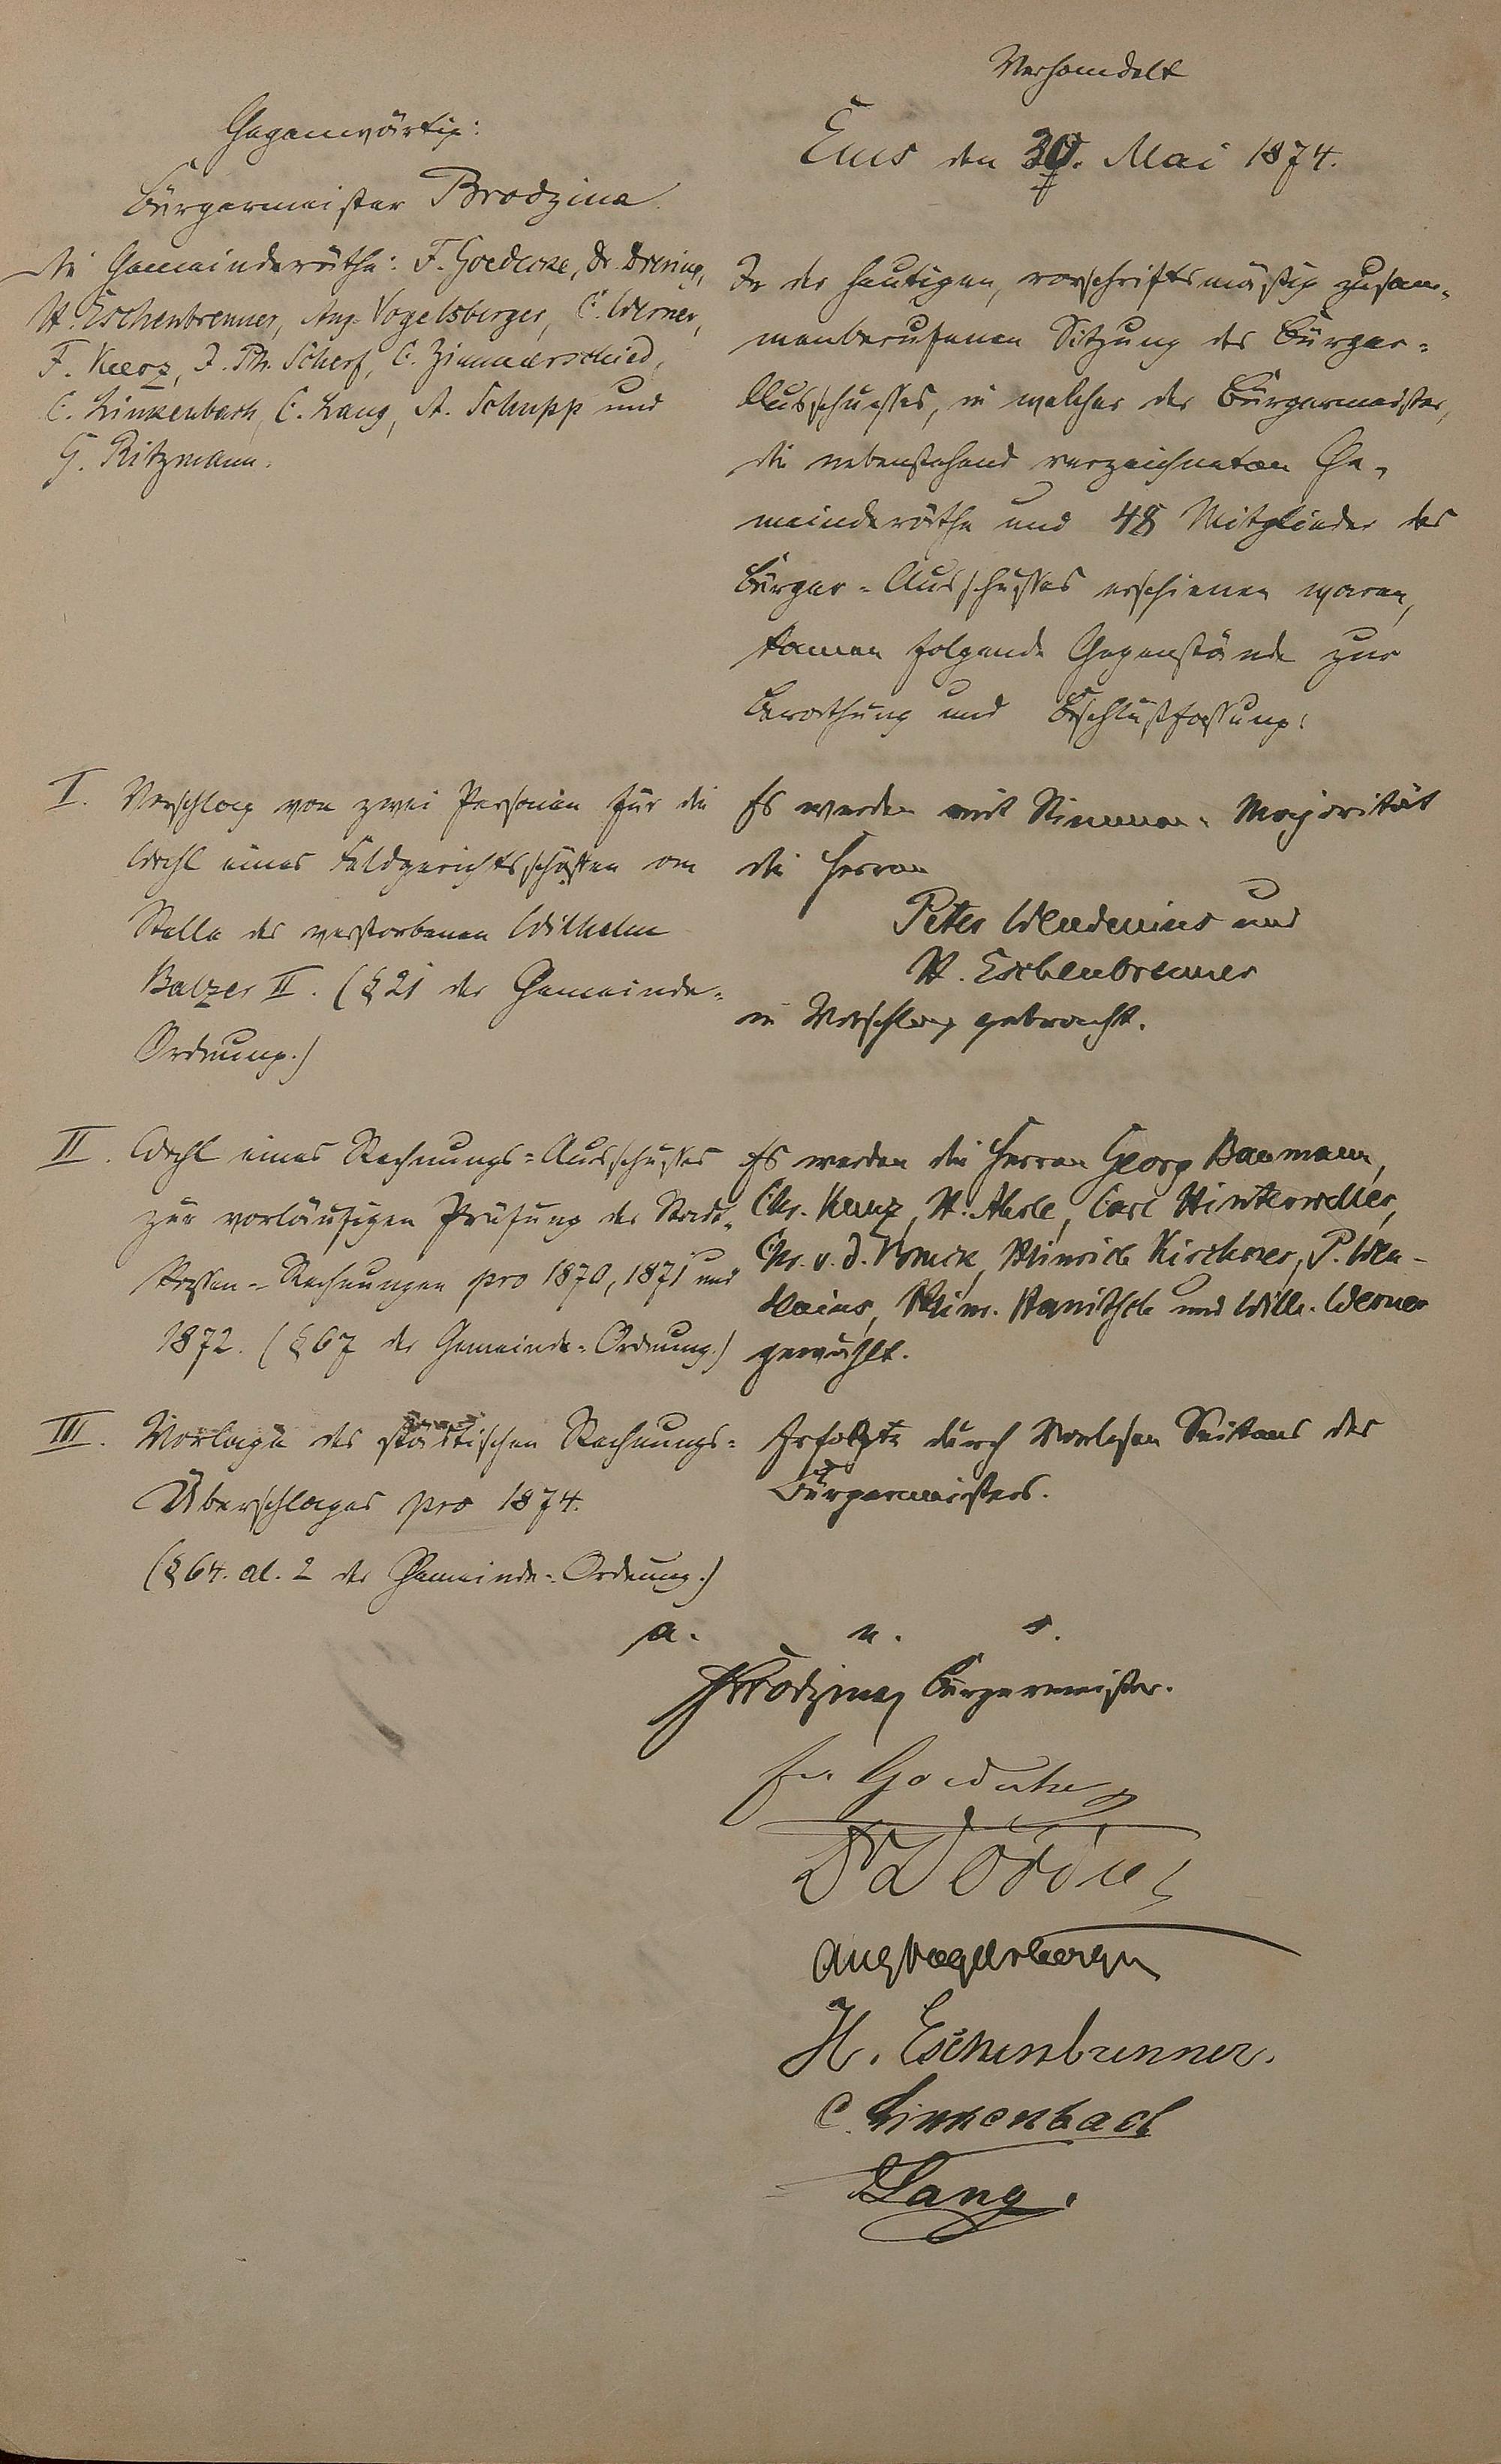 Verhandelt
Ems den 30. Mai 1874.
Gegenwärtig:
Bürgermeister Brodzina
die Gemeinderäthe: F. Goedecke, Dr. Doering,
H. Eschenbrenner, Aug. Vogelsberger, C. Werner,
F. Keerz, J. Ph. Scherf, C. Zimmerschied,
C. Linkenbach, C. Lang, A. Schupp und
G. Ritzmann.
In der heutigen, vorschriftsmäßig zusam-
menberufenen Sitzung des Bürger-
Ausschusses, in welcher der Bürgermeister,
die nebenstehend verzeichneten Ge-
meinderäthe und 48 Mitglieder des
Bürger-Ausschusses erschienen waren,
kamen folgende Gegenstände zur
Berathung und Beschlußfassung:
I. Vorschlag von zwei Personen für die
Wahl eines Feldgerichtsschöffen an
Stelle des verstorbenen Wilhelm
Balzer II. (§ 21 der Gemeinde-
Ordnung.)
Es werden mit Stimmen-Majorität
die Herren
Peter und
H. Eschenbrenner
in Vorschlag gebracht.
II. Wahl eines Rechnungs-Ausschusses
zur vorläufigen Prüfung der Stadt-
kassen-Rechnungen pro 1870, 1871 und
1872. (§ 67 der Gemeinde-Ordnung.)
Es werden die Herren Georg Baumann,
Chr. H. Carl Hinterwäller,
Chr. v. d. Heinrich Kirchner, P.
und Wilh. Werner
gewählt.
III. Vorlage des städtischen Rechnungs-
Überschlages pro 1874.
(§ 64. al. 2 der Gemeinde-Ordnung.)
Erfolgte durch Vorlesen Seitens des
Bürgermeisters.
a. u. s.
Brodzina, Bürgermeister.
Fr. Goedecke
Dr Döring
Aug Vogelsberger
H. Eschenbrenner.
C. Linkenbach
Lang.